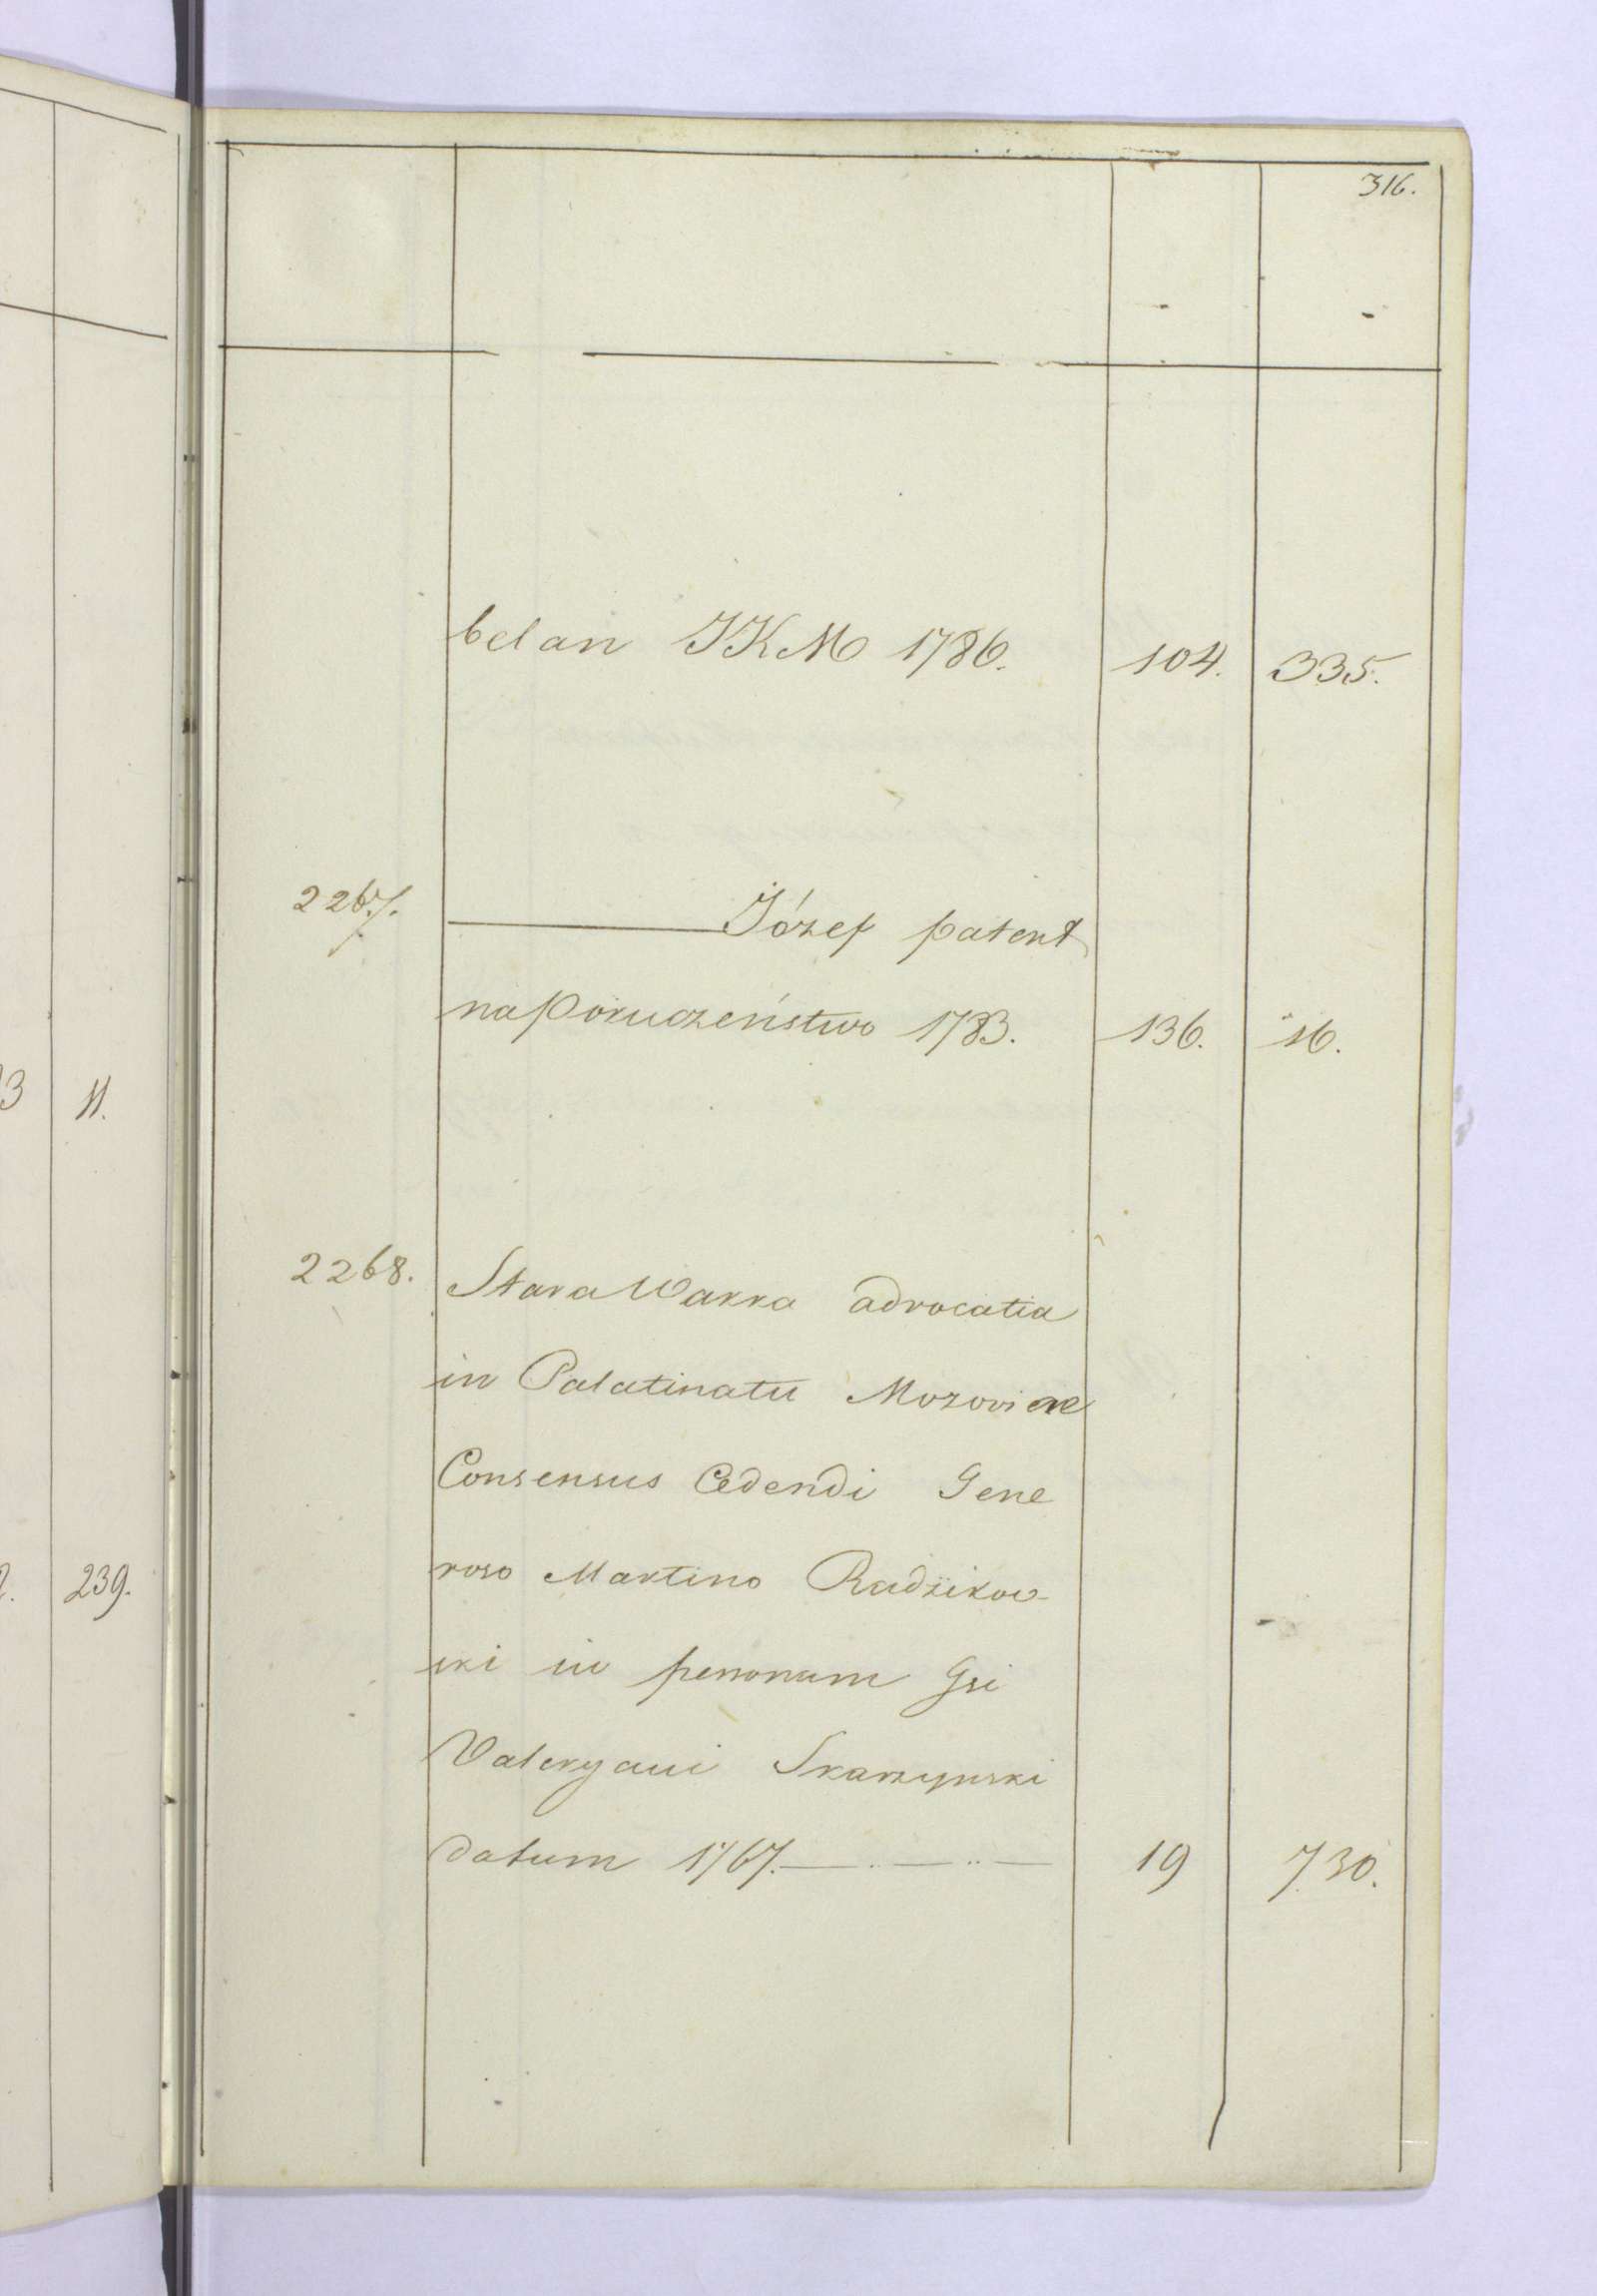 316.
belan JKM 1786. 104. 335.
2267. ——— Józef patent
na Poruczeństwo 1783. 136. 16.
2268. Stara Warka advocatia
in Palatinatu Mozoviae
Consensus Cedendi Gene
roso Martino Radzikow-
ski in personam Gsi
Valeryani Skarzynski
datum 1767. — . — .. — 19 730.
3 11.
239.